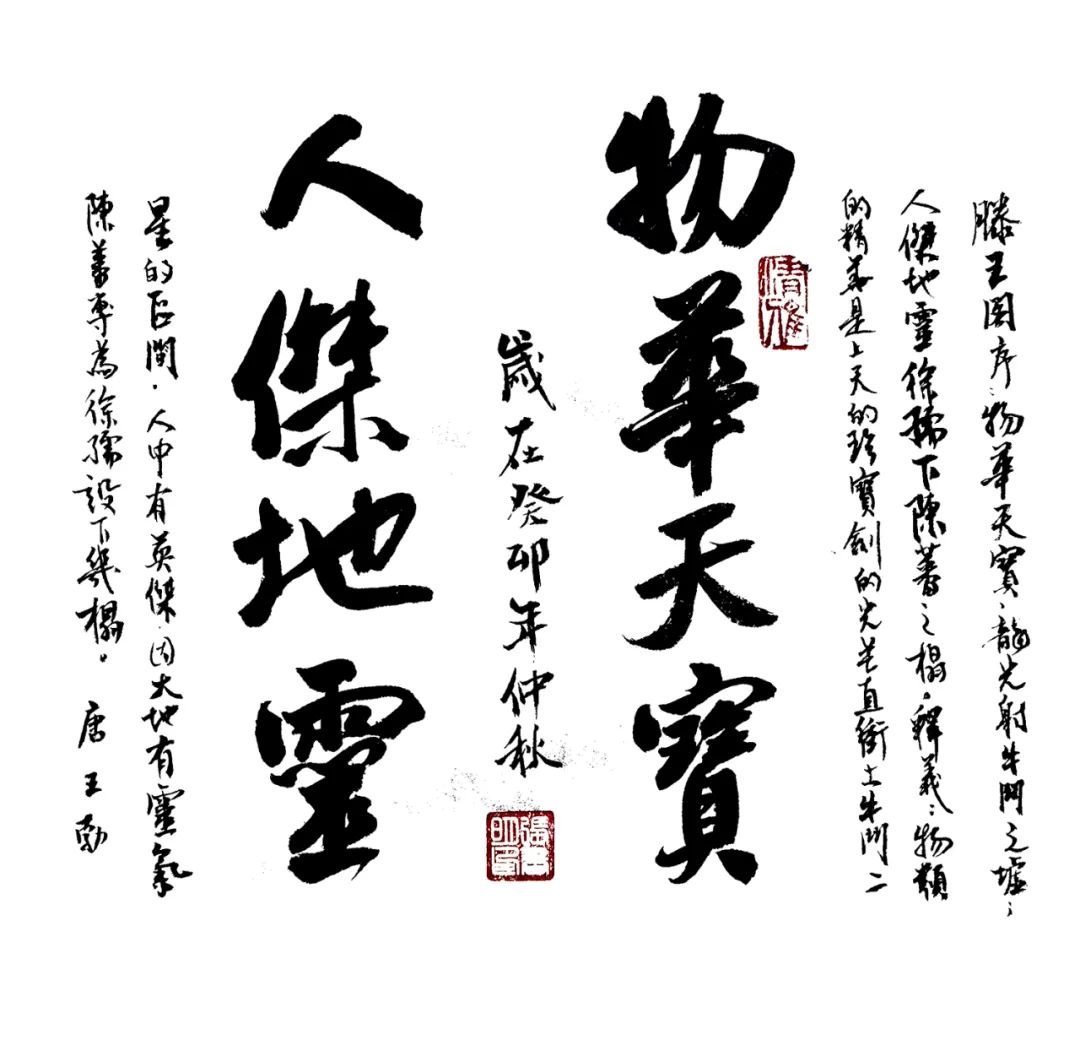 滕王閣序：物華天寶，龍光射牛鬥之墟；
人傑地靈徐孺下陳蕃之榻。釋義：物類
的精華是上天的珍寶劍的光芒直衝上牛鬥二
物華天寶
清雅
歲在癸卯年仲秋
人傑地靈
星的區間，人中有英傑，因大地有靈氣
陳蕃專為徐孺設下幾榻。 唐 王勃